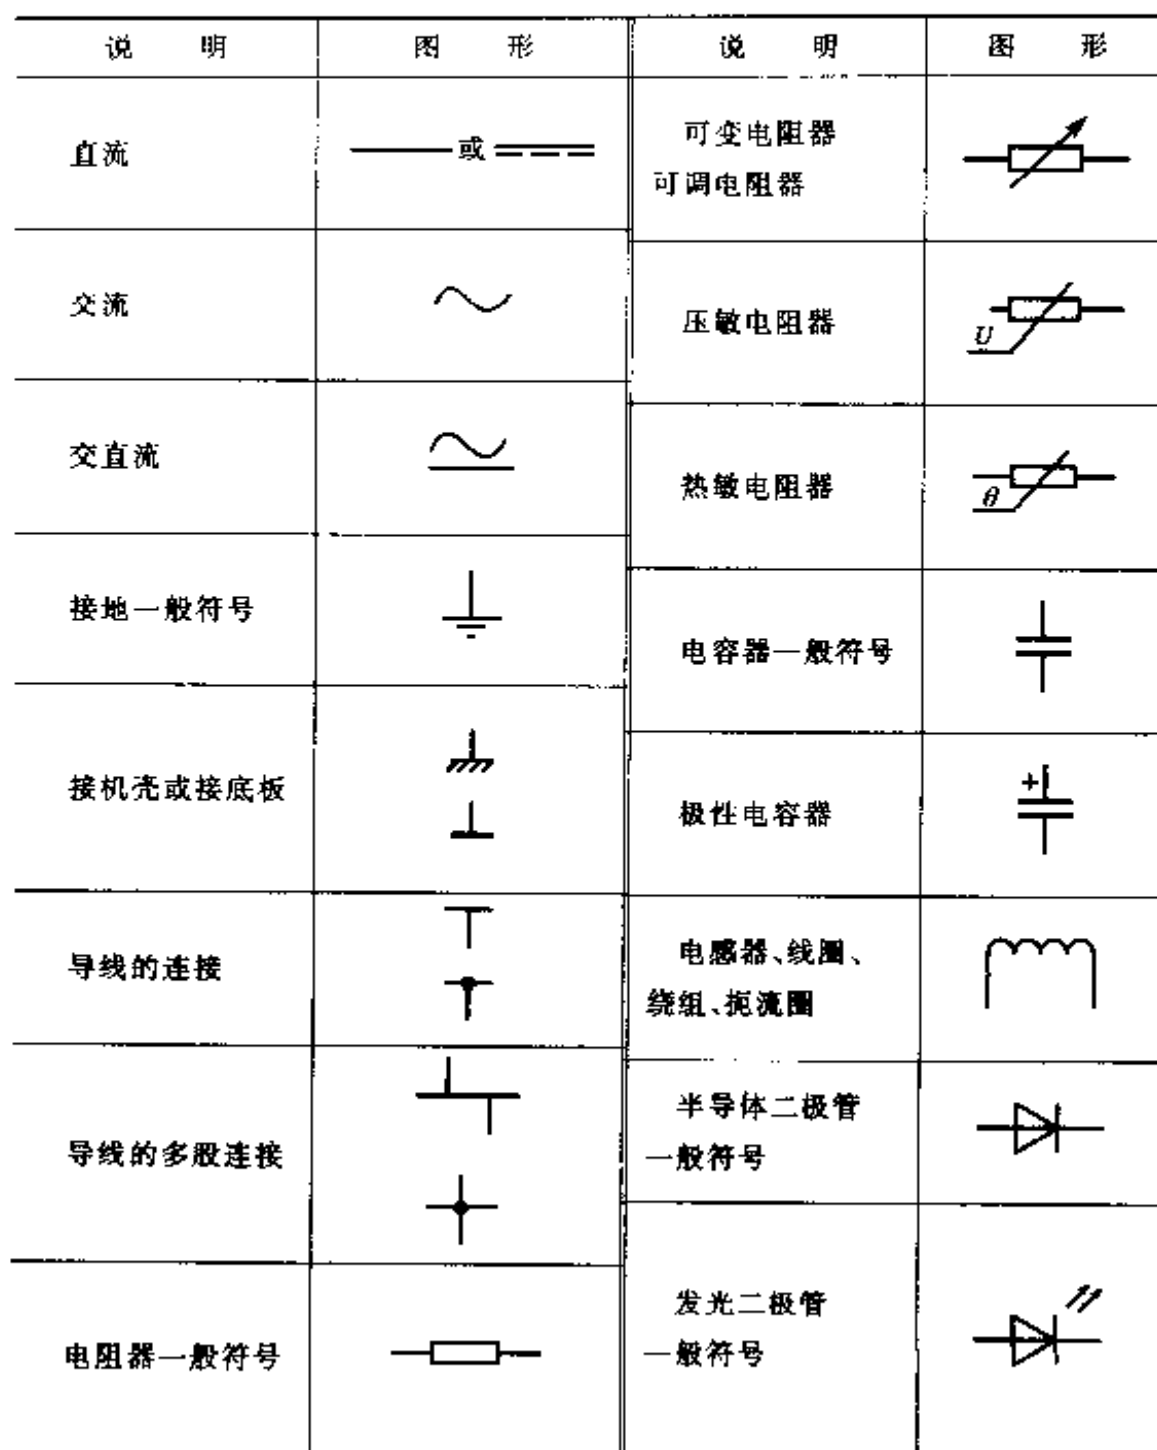 说 明 图 形 说 明 图 形
直流
或
交流
交直流
接地一般符号
接机壳或接底板
导线的连接
导线的多股连接
电阻器一般符号
可变电阻器
可调电阻器
压敏电阻器
U
热敏电阻器
θ
电容器一般符号
极性电容器
+
电感器、线圈、
绕组、扼流圈
半导体二极管
一般符号
发光二极管
一般符号